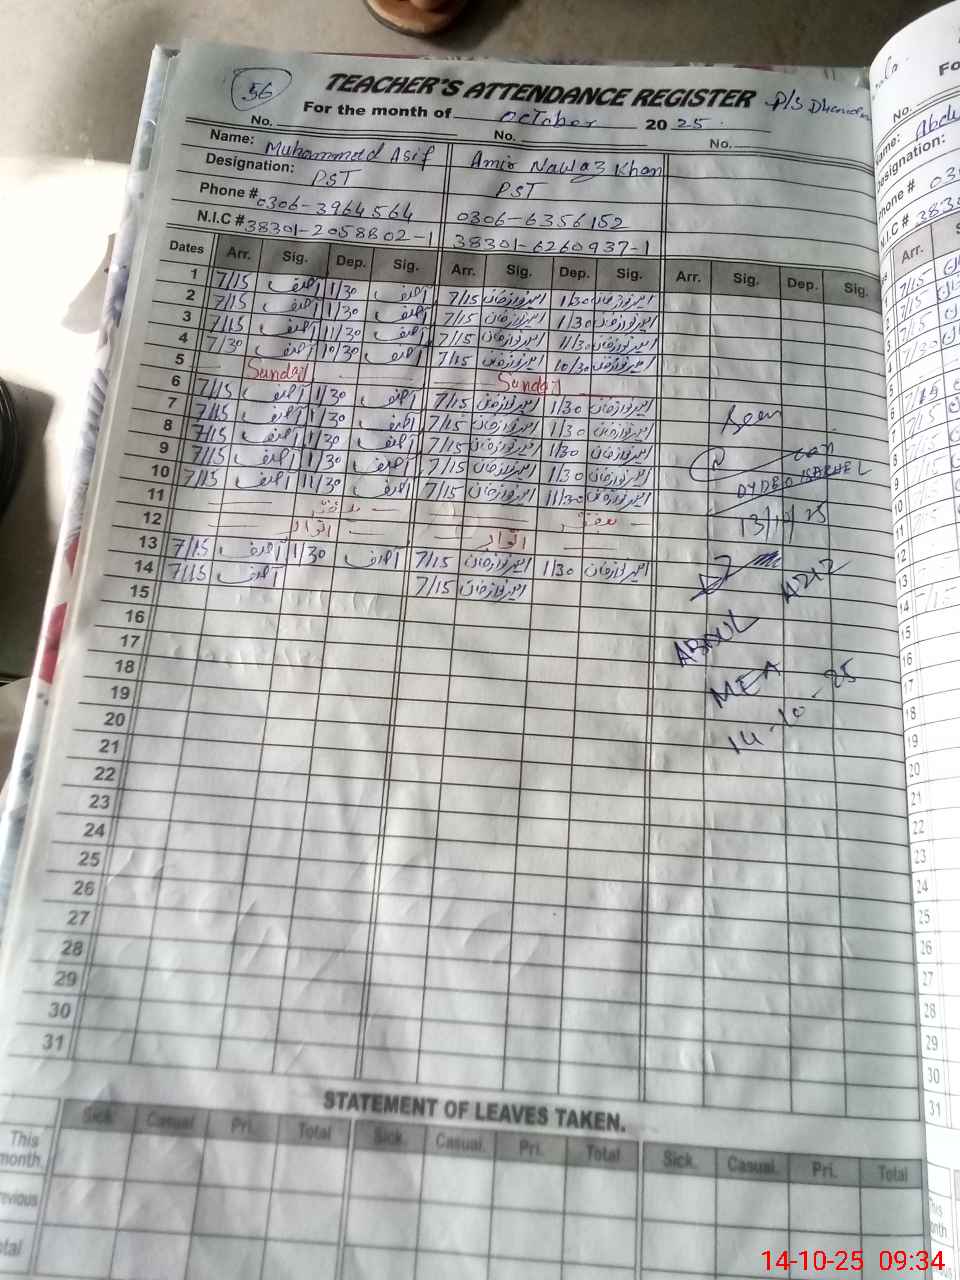 56
TEACHER'S ATTENDANCE REGISTER P/S
For the month of October 2025
No. No. No.
Name: Muhammad Asif Amir Nawaz Khan
Designation: PST PST
Phone # 0306-3964564 0306-6356152
N.I.C # 38301-2058802-1 38301-6260937-1
Dates Arr. Sig. Dep. Sig. Arr. Sig. Dep. Sig. Arr. Sig. Dep. Sig.
1 7/15 آصف 1/30 آصف 7/15 امیر نواز خان 1/30 امیر نواز خان
2 7/15 آصف 1/30 آصف 7/15 امیر نواز خان 1/30 امیر نواز خان
3 7/15 آصف 11/30 آصف 7/15 امیر نواز خان 11/30 امیر نواز خان
4 7/30 آصف 10/30 آصف 7/15 امیر نواز خان 10/30 امیر نواز خان
5 Sunday Sunday
6 7/15 آصف 1/30 آصف 7/15 امیر نواز خان 1/30 امیر نواز خان
7 7/15 آصف 1/30 آصف 7/15 امیر نواز خان 1/30 امیر نواز خان
8 7/15 آصف 1/30 آصف 7/15 امیر نواز خان 1/30 امیر نواز خان
9 7/15 آصف 1/30 آصف 7/15 امیر نواز خان 1/30 امیر نواز خان
10 7/15 آصف 11/30 آصف 7/15 امیر نواز خان 11/30 امیر نواز خان
11 ہفتہ ہفتہ
12 اتوار اتوار
13 7/15 آصف 1/30 آصف 7/15 امیر نواز خان 1/30 امیر نواز خان
14 7/15 آصف 7/15 امیر نواز خان
15
16
17
18
19
20
21
22
23
24
25
26
27
28
29
30
31
Seen
13/10/25
ABDUL AZIZ
MEA
14-10-25
STATEMENT OF LEAVES TAKEN.
Sick. Casual Pri. Total Sick. Casual. Pri. Total Sick. Casual. Pri. Total
This month.
evious
otal
14-10-25 09:34